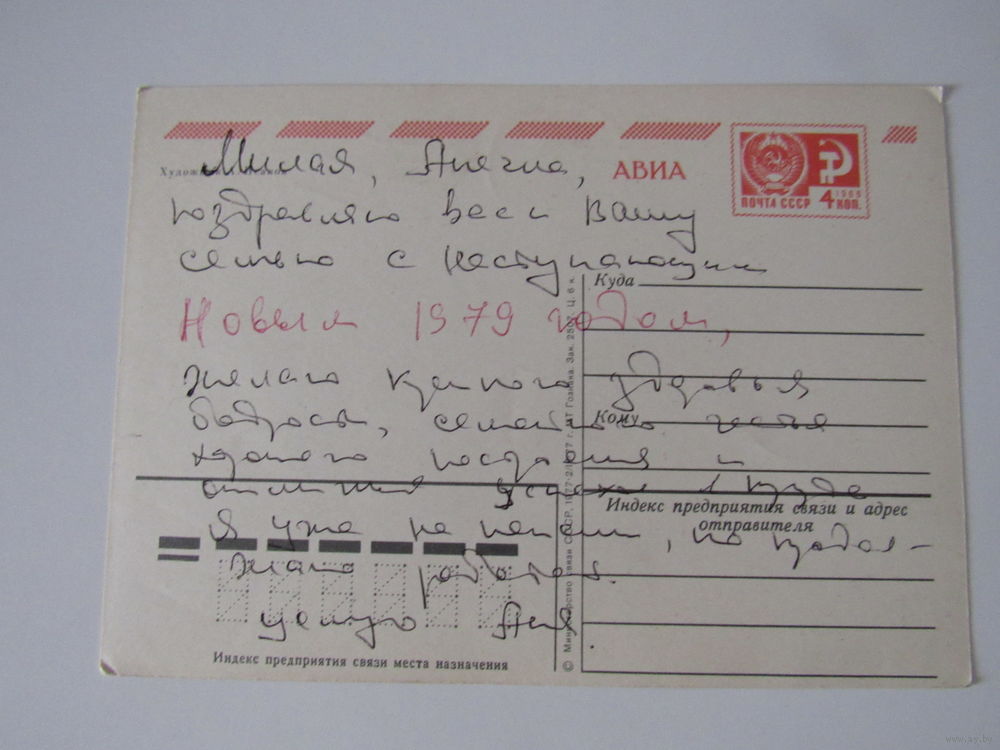 АВИА
ПОЧТА СССР 4 КОП.
1966
Милая, Анечка,
поздравляю вас и Вашу
семью с наступающим
Новым 1979 годом,
желаю крепкого здоровья
бодрости, семейного счастья
хорошего настроения и
успехов в труде
Я уже на пенсии, но продол-
жаю работать.
целую Аня
Куда
Кому
Индекс предприятия связи и адрес
отправителя
Индекс предприятия связи места назначения
© Министерство связи СССР, 1977